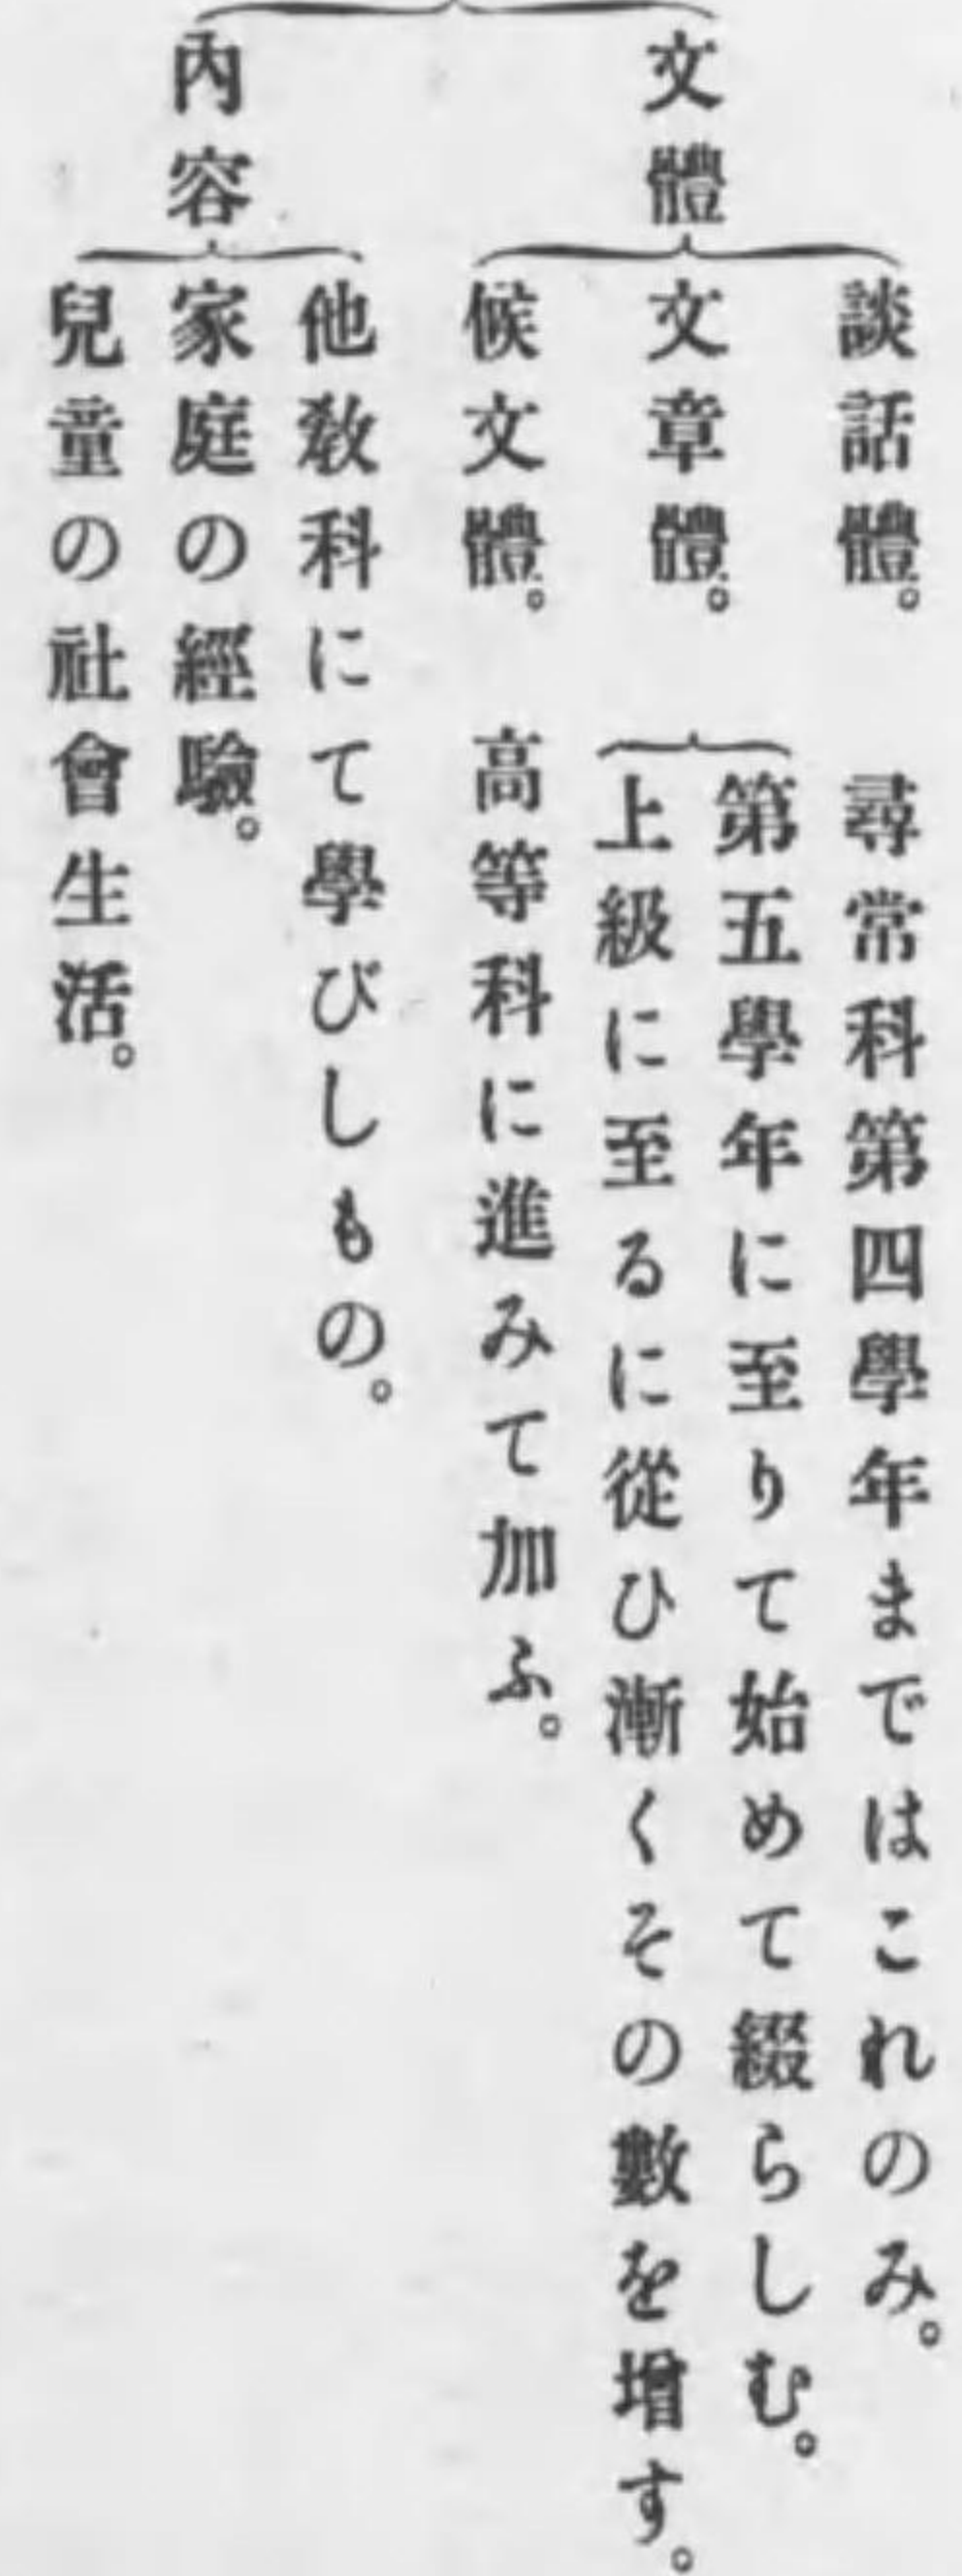 文體
談話體。
尋常科第四學年まではこれのみ。
文章體。
第五學年に至りて始めて綴らしむ。
上級に至るに從ひ漸くその數を增す。
候文體。
高等科に進みて加ふ。
內容
他敎科にて學びしもの。
家庭の經驗。
兒童の社會生活。